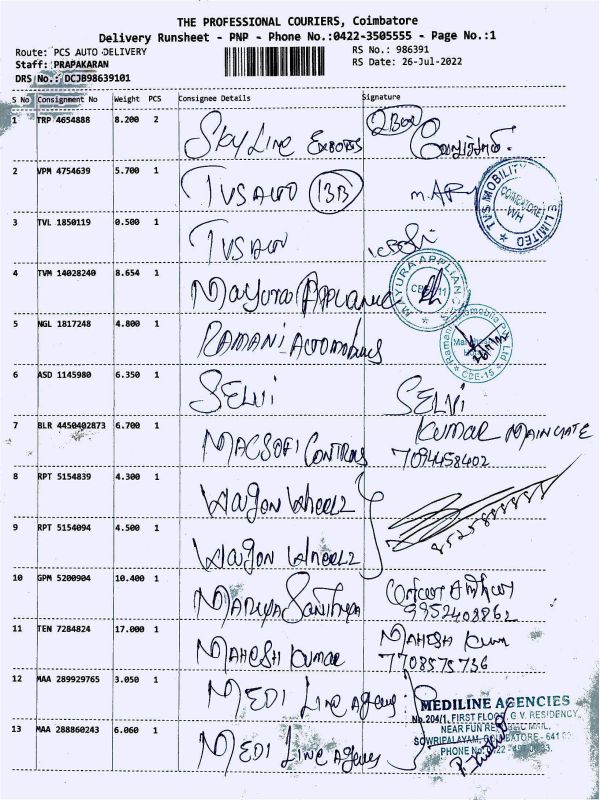 THE PROFESSIONAL COURIERS, Coimbatore
Delivery Runsheet - PNP - Phone No.:0422-3505555 - Page No.:1
Route: PCS AUTO DELIVERY
RS No.: 986391
Staff: PRAPAKARAN
RS Date: 26-Jul-2022
DRS No.: DCJB98639101
S No Consignment No Weight PCS Consignee Details Signature
1 TRP 4654888 8.200 2 SkyLine Exports 2 Box
2 VPM 4754639 5.700 1 TVS Auto 13B
TVS MOBILITY LIMITED COIMBATORE WH
3 TVL 1850119 0.500 1 TVS Auto
4 TVM 14028240 8.654 1 Mayura Appliance
MAYURA APPLIANC CBE-11
5 NGL 1817248 4.800 1 RAMANi Automobiles
Ramani Automobile Pvt Ltd CBE-15
6 ASD 1145980 6.350 1 SELVi SELVi
7 BLR 4450402873 6.700 1 MACSOFI CONTROLS KUMAR MAINGATE
7094458402
8 RPT 5154839 4.300 1 Wagon Wheelz
9 RPT 5154094 4.500 1 Wagon Wheelz
10 GPM 5200904 10.400 1 MARIYA Santhiya
9952408862
11 TEN 7284824 17.000 1 MAHESH KUMAR MAHESH Kum
7708575736
12 MAA 289929765 3.050 1 MEDi Line Agencys
13 MAA 288860243 6.060 1 MEDi Line Agencys
MEDILINE AGENCIES
No.204/1, FIRST FLOOR, G.V. RESIDENCY,
NEAR FUN REPUBLIC MALL
SOWRIPALAYAM, COIMBATORE - 641
PHONE No.: 0422